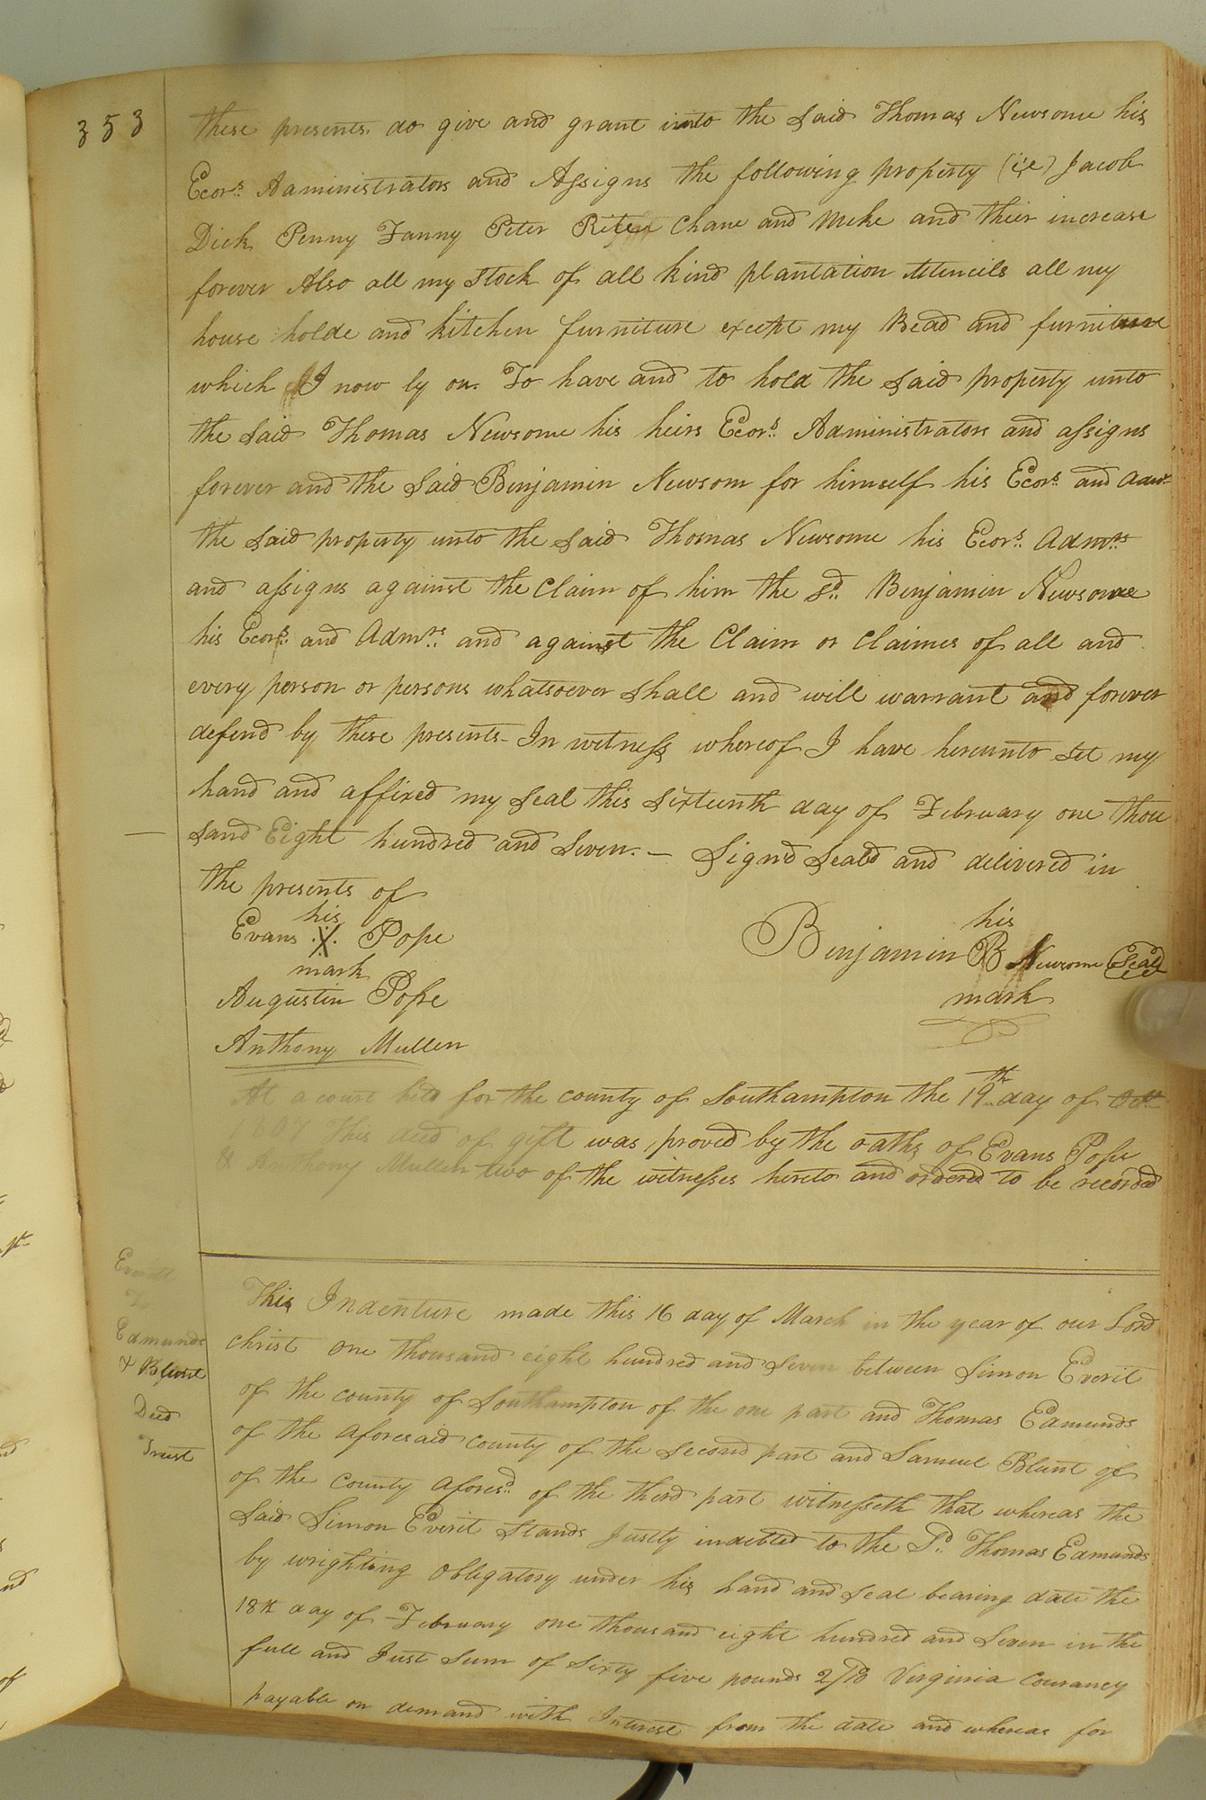 353
these presents do give and grant unto the said Thomas Newsome his
Ecors. Administrators and Assigns the following property (ise) Jacob
Dick Penny Fanny Peter Chane and Meke and their increase
forever Also all my Stock of all kind plantation utencils all my
house holde and kitchen furniture except my Bead and furniture
which I now ly on. To have and to hold the said property unto
the said Thomas Newsome his heirs Ecors. Administrators and assigns
forever and the said Benjamin Newsom for himself his Ecors. and Admr
the said property unto the said Thomas Newsome his Ecors. Admrs
and assigns against the Claim of him the Sd. Benjamin Newsome
his Ecors. and Admrs. and against the Claim or Claimes of all and
every person or persons whatsoever shall and will warrant and forever
defend by these presents – In witness whereof I have hereunto set my
hand and affixed my Seal this Sixteenth day of February one thou
sand Eight hundred and Seven. – Signd Seald and delivered in
the presents of
his
Evans X Pope
mark
his
Benjamin B Newsome Seal
mark
Augustin Pope
Anthony Mullen
At a court held for the county of Southampton the 19th day of Octr
1807 This deed of gift was proved by the oaths of Evans Pope
& Anthony Mullen two of the witnesses hereto and ordered to be recorded
Everitt
To
Edmunds
& Blunt
Deed
Trust
This Indenture made this 16 day of March in the year of our Lord
christ one thousand eight hundred and Seven between Simon Everit
of the county of Southampton of the one part and Thomas Edmunds
of the aforesaid county of the second part and Samuel Blunt of
of the county aforesd. of the third part witnesseth that whereas the
said Simon Everit Stands Justly indebted to the Sd. Thomas Edmunds
by wrighting obligatory under his hand and seal bearing date the
18th day of February one thousand eight hundred and Seven in the
full and Just Sum of Sixty five pounds Virginia Courancy
payable on demand with Interest from the date and whereas for